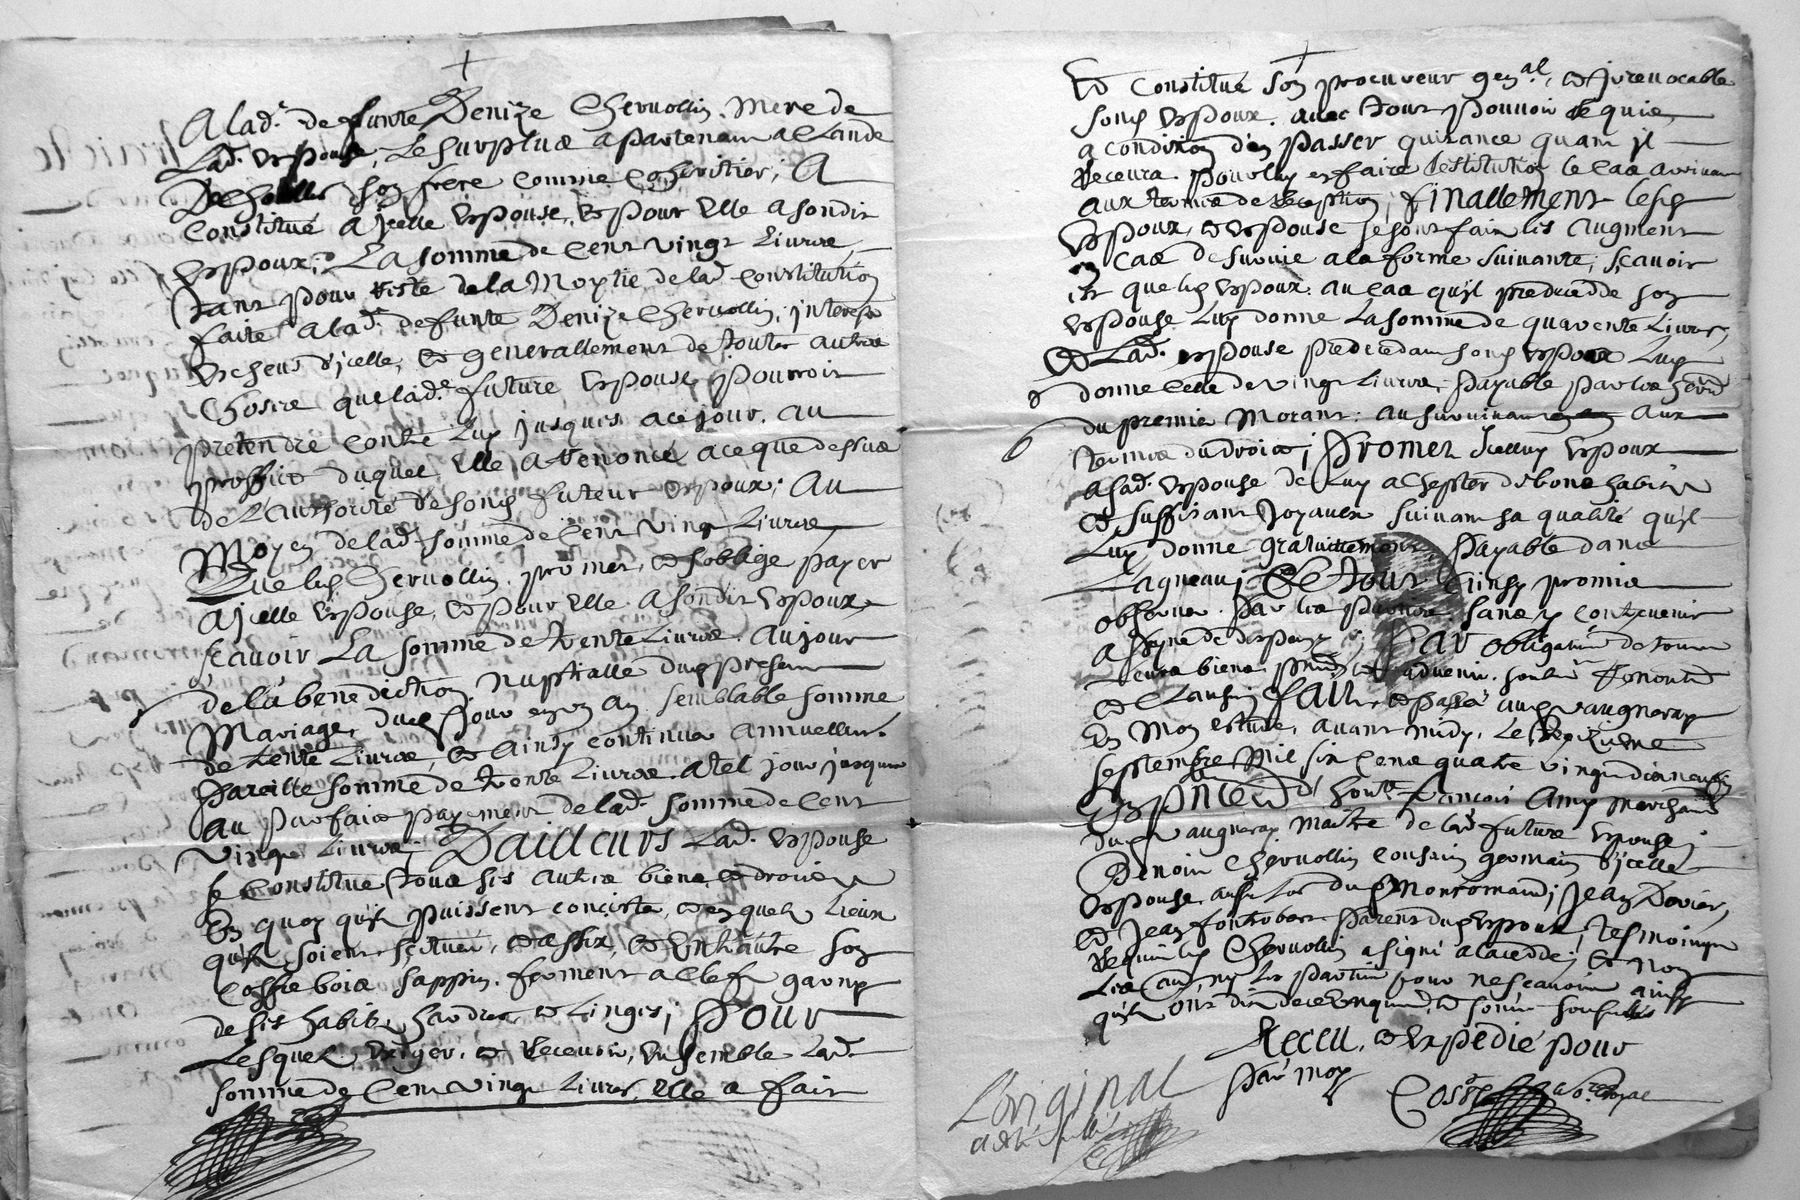 A lad.e deffunte Denize Chervollin, mere de
Lad. espouse, Le surplus apartenant a Claude
son frere comme coheritier; A
Constitué a jcelle espouse, et pour elle a sondit
espoux; La somme de Cent vingt Livres
tant pour reste de la Moytié de lad. constitution
faite a lad. deffunte Denize Chervollin, interests
d'jcelle, et generallement de toutes autres
Choses que lad.e future espouse pourroit
pretendre contre Luy jusques a ce jour. Au
proffit duquel elle a renoncé a ce que dessus
de l'authorité de sond futeur espoux; Au
Moyen de lad. somme de Cent vingt Livres,
Que led Chervollin promet, et s'oblige payer
a jcelle espouse, et pour elle a sondit espoux,
sçavoir La somme de trente Livres au jour
de la benediction nuptialle dud present
Mariage, dud jour en un an semblable somme
de trente Livres, et ainsy continuer annuellem.t
Pareille somme de trente Livres a tel jour jusques
au parfait payement de lad. somme de Cent
vingt Livres; D'ailleurs Lad. espouse
se constitue tous ses autres biens et droits
En quoy qu'ils puissent concister, et en quels lieux
qu'ils soient scitués, et assix, et entr'autre son
coffre bois sappin, fermant a clef, garny
de ses habits, hardes et Linges; Pour
Lesquels exiger, et recevoir, ensemble Lad.
somme de Cent vingt Livres, elle a fait
Et Constitué son procureur gen.al, et jrrevocable
sond espoux, avec tout pouvoir requis,
a condition d'en passer quitance quant jl
Recevra, pour luy en faire restitution le cas arrivant
aux termes de ; Finallement lesd
espoux, et espouse se sont fait les augment
en cas de survie a la forme suivante, sçavoir
est que led espoux au cas qu'jl predecedde son
espouse Luy donne La somme de quarente Livres,
Et Lad. espouse predecedant sond espoux Luy
donne Celle de vingt Livres, payable par les
du premie Morant au survivant aux
termes du droict; Promet Jcelluy espoux
a lad. espouse de Luy achepter de bons habits
et suffisant Joyaux suivant sa qualité qu'jl
Luy donne gratuittement, payable dans
L'agneau; Le tout ainsy promis
observer par les parties sans y contrevenir
a peyne de despens; Par obligation de tous
leurs biens et advenir, renoncé
et Clauses; Fait, et passé aud vaugneray
En Mon estude, avant midy, Le
Septembre Mil six Cens quatre vingt dix neuf
En presence d'hon.ble François Marchand
dud vaugneray Maitre de lad future espouse;
Benoit Chervollin cousin germain d'jcelle
espouse, dud Montromand; Jean
et Jean parent dud espoux, tesmoings
Requis led Chervollin a signé a la cedde; Et non
Les , ny les parties pour ne sçavoir ainsy
qu'ils ont dit de ce enquis, et
Receu, et expedié pour
Par moy
L'original